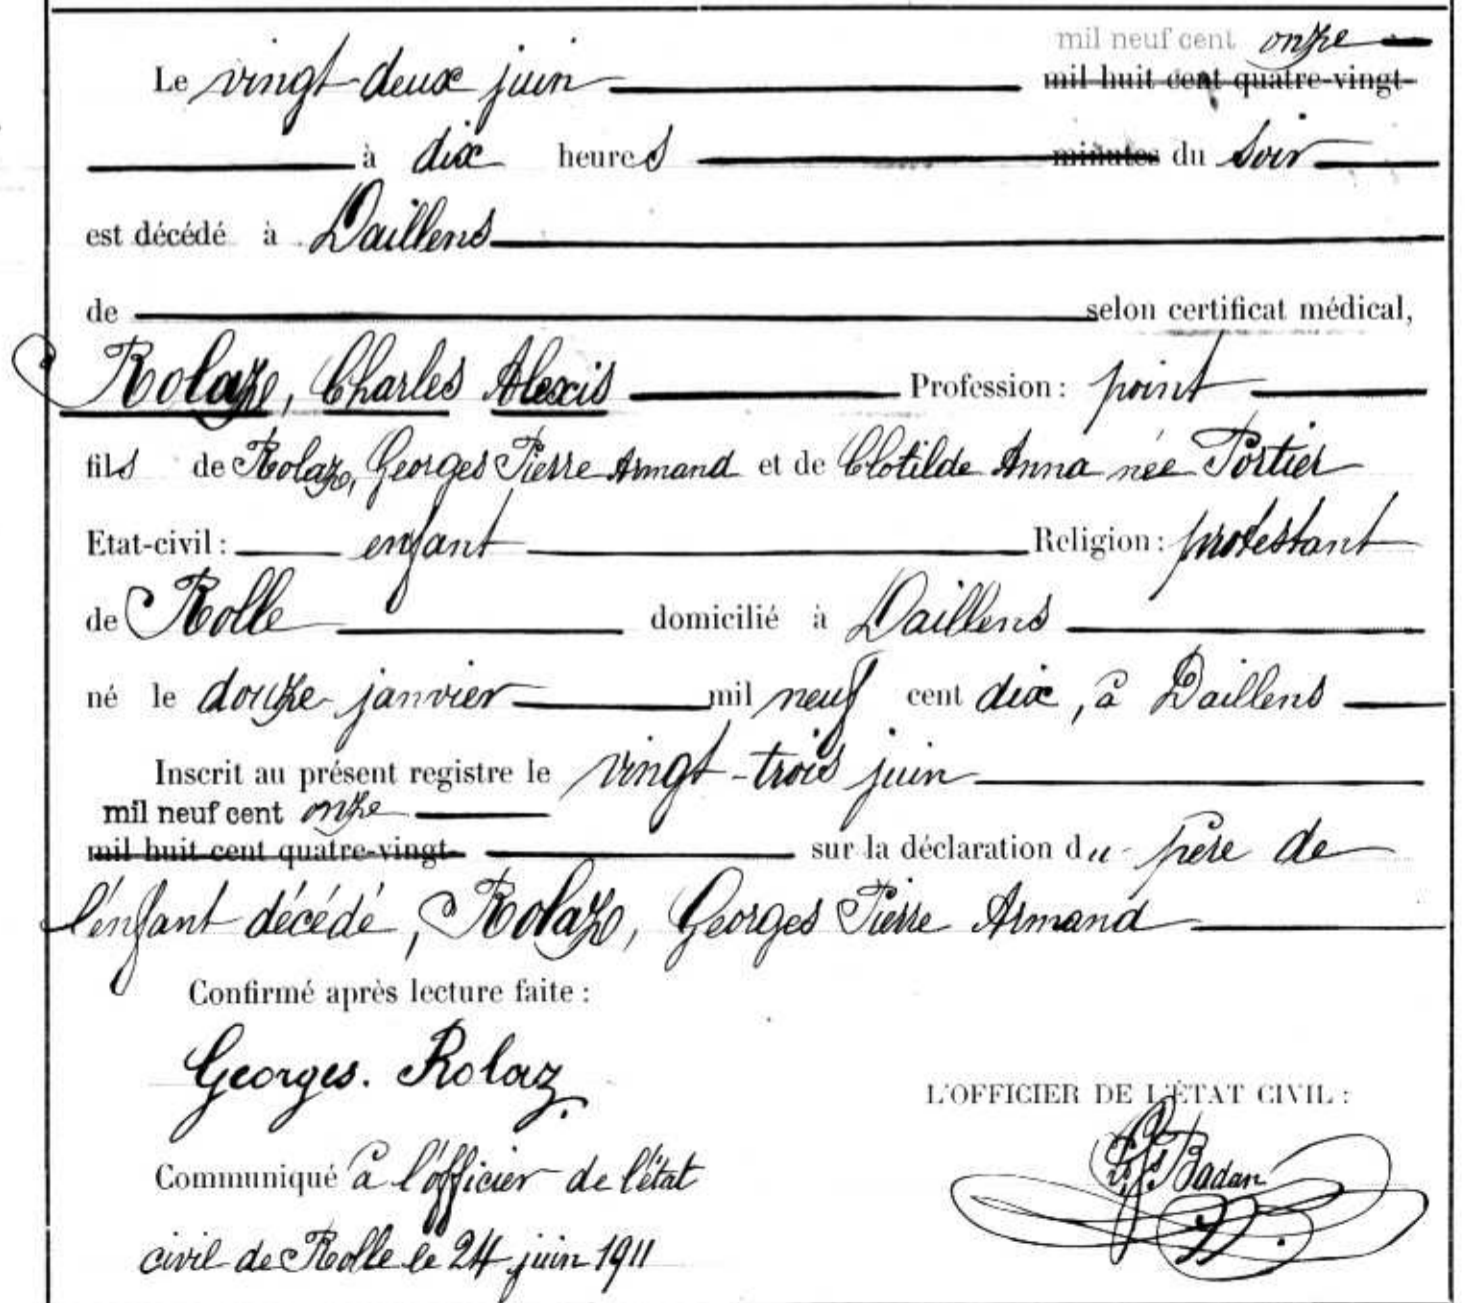 mil neuf cent onze
Le vingt-deux juin mil huit cent quatre-vingt-
à dix heures minutes du soir
est décédé à Daillens
de selon certificat médical,
Rolaz, Charles Alexis Profession : point
fils de Rolaz, Georges Pierre Armand et de Clotilde Anna née Portier
Etat-civil : enfant Religion : protestant
de Rolle domicilié à Daillens
né le douze janvier mil neuf cent dix, à Daillens
Inscrit au présent registre le vingt-trois juin
mil neuf cent onze
mil huit cent quatre-vingt- sur la déclaration du père de
l'enfant décédé, Rolaz, Georges Pierre Armand
Confirmé après lecture faite :
Georges. Rolaz.
L'OFFICIER DE L'ÉTAT CIVIL :
Communiqué à l'officier de l'état
Badan
civil de Rolle le 24 juin 1911